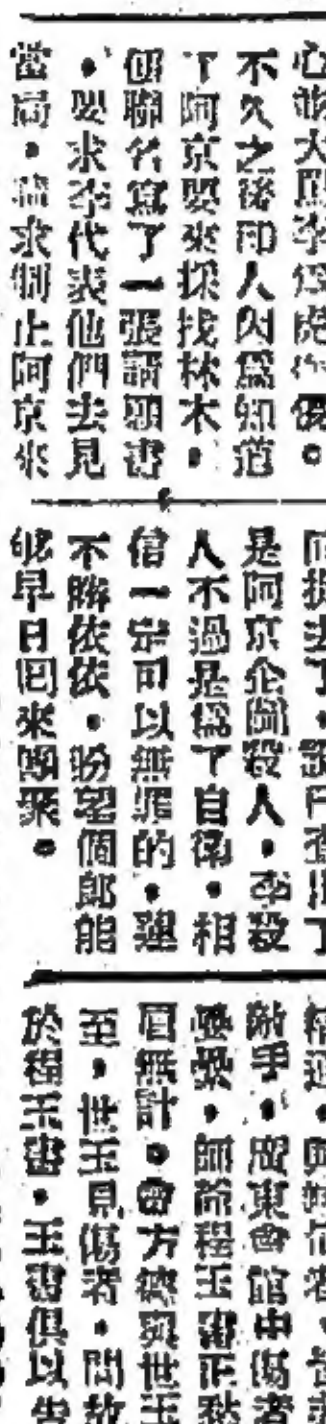 心並大罵李
不久之後印人因爲知道
了阿京要來採找林木。
便聯名寫了一張請願書
，要求李代表他們去見
當局，請求制止阿京來
是阿京企圖殺人，李殺
人不過是爲了自衛，相
信一定可以無罪的，
不勝依依，盼望個郎能
够早日回來團聚。
敵手，廣東會館中傷者
師爺程玉書正愁
眉無計，會方德與世玉
至，世玉見傷者，問故
於程玉書，玉書俱以告